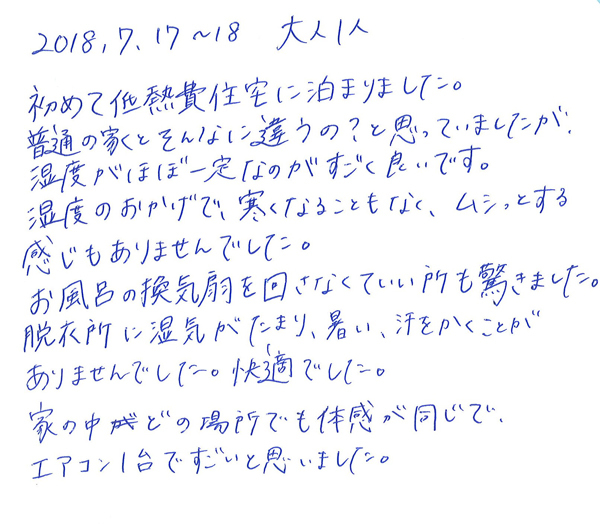 2018,7,17~18 大人1人
初めて低熱費住宅に泊まりました。
普通の家とそんなに違うの?と思っていましたが、
湿度がほぼ一定なのがすごく良いです。
湿度のおかげで、寒くなることもなく、ムシっとする
感じもありませんでした。
お風呂の換気扇を回さなくていい所も驚きました。
脱衣所に湿気がたまり、暑い、汗をかくことが
ありませんでした。快適でした。
家の中がどの場所でも体感が同じで、
エアコン1台ですごいと思いました。